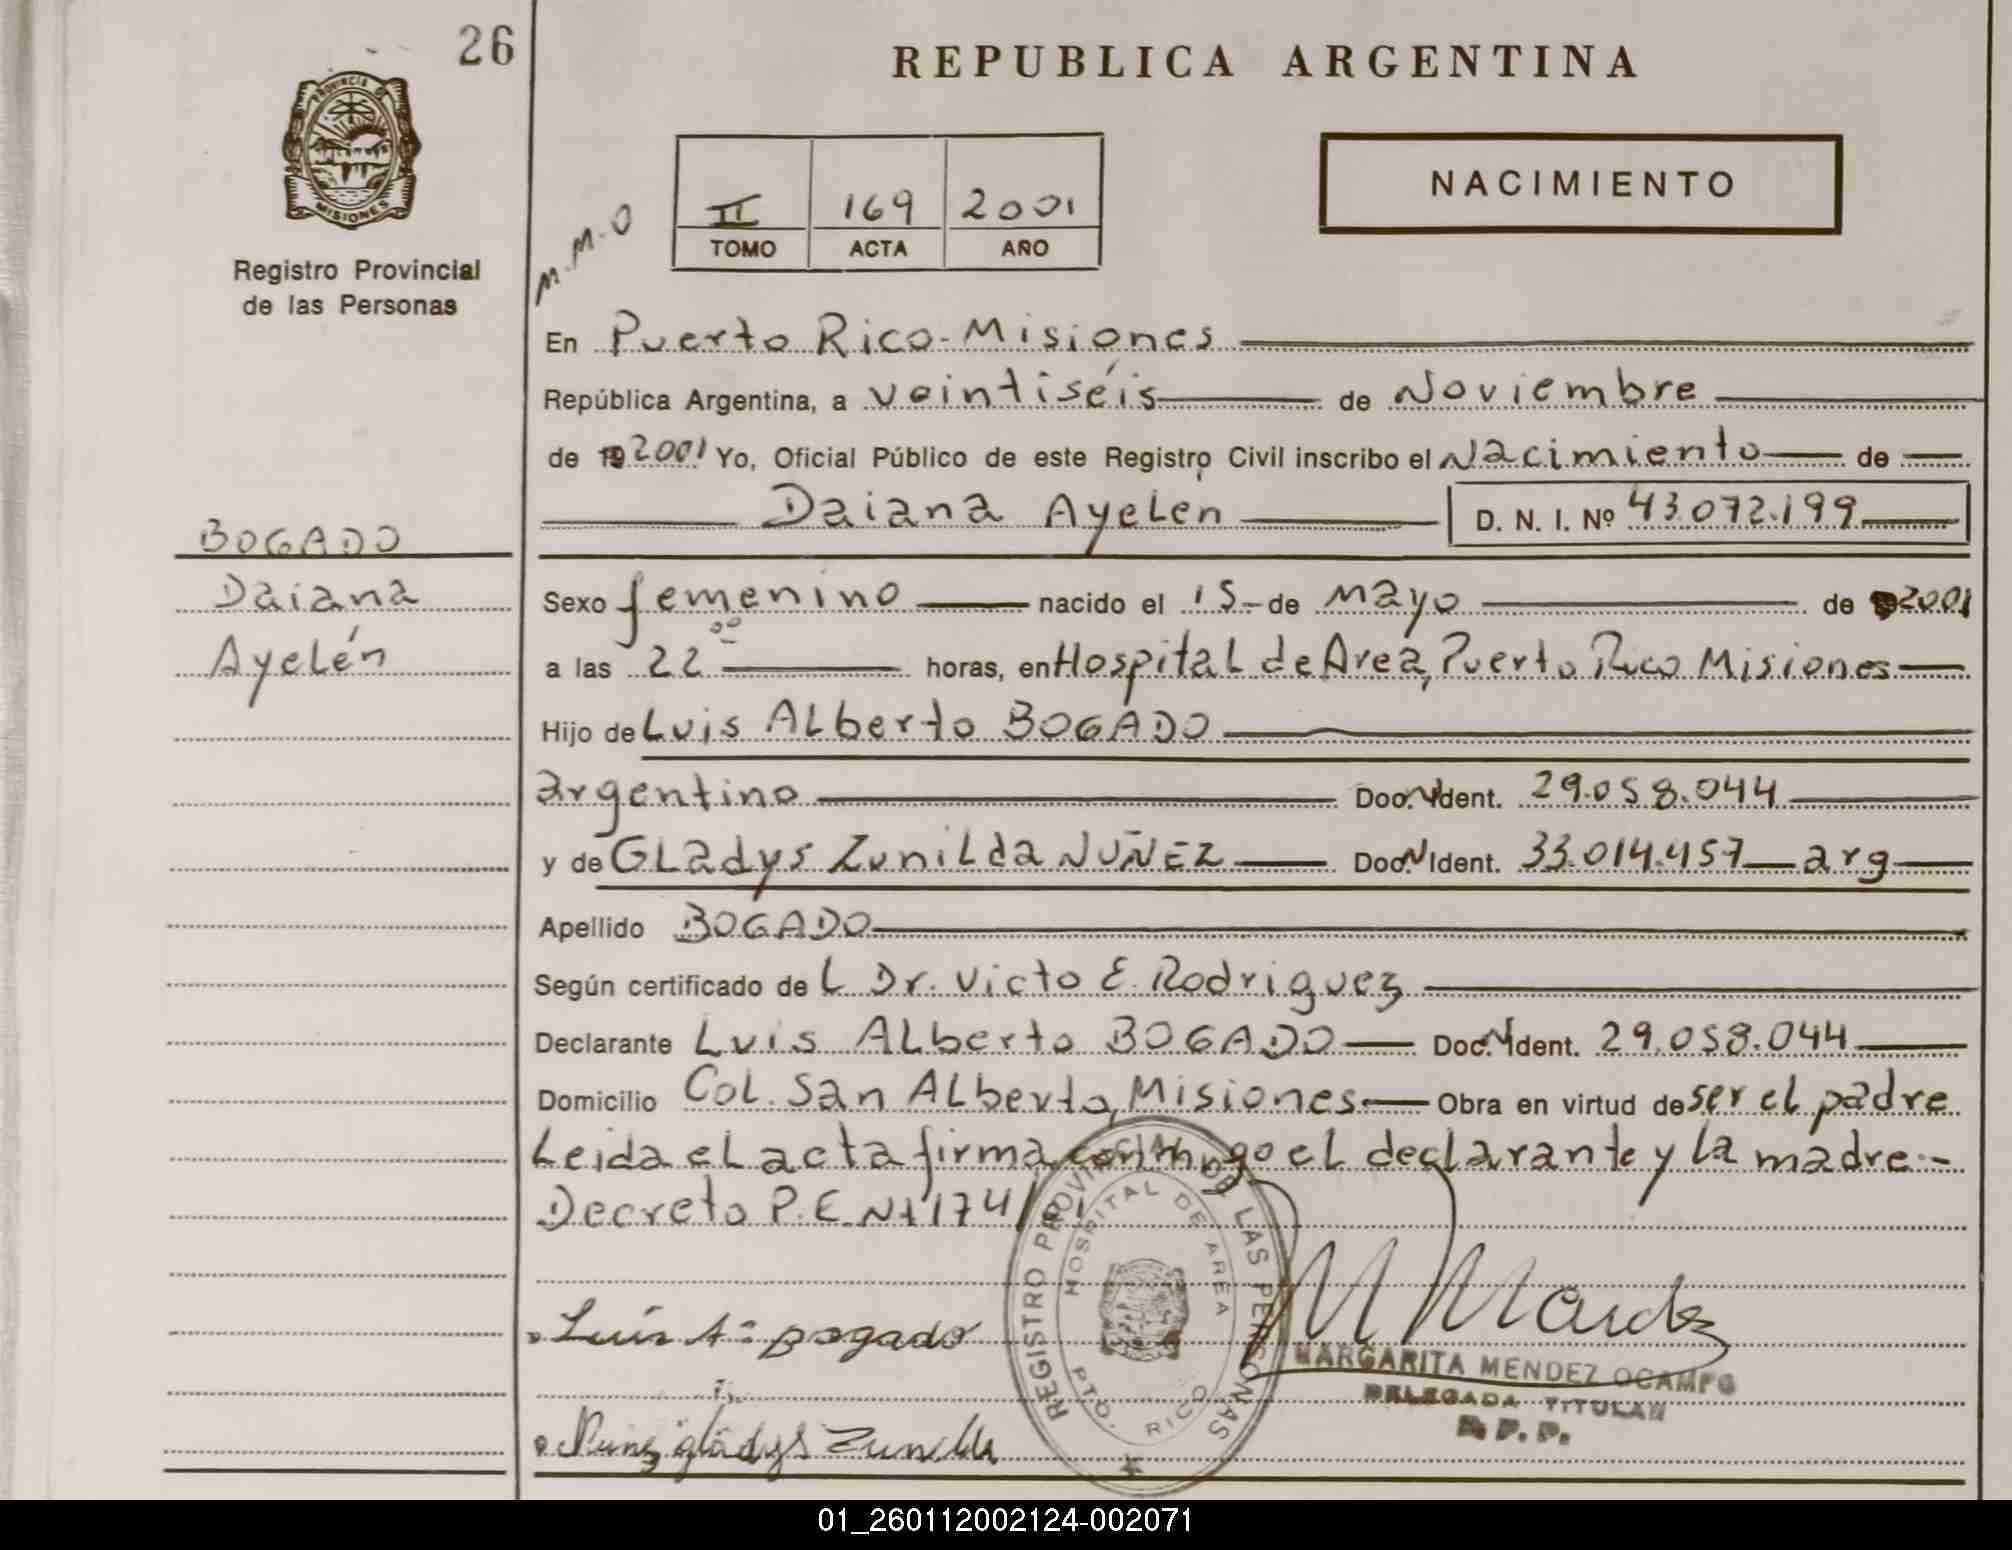 26
REPUBLICA ARGENTINA
PROVINCIA DE
MISIONES
Registro Provincial
de las Personas
M.M.O
II 169 2001
TOMO ACTA AÑO
NACIMIENTO
En Puerto Rico-Misiones
República Argentina, a veintiséis de Noviembre
de 19 2001 Yo, Oficial Público de este Registro Civil inscribo el Nacimiento de
Daiana Ayelen D. N. I. Nº 43.072.199
BOGADO
Daiana
Ayelén
Sexo femenino nacido el 15 de mayo de 2001
a las 22 00 horas, en Hospital de Area, Puerto Rico Misiones
Hijo de Luis ALberto BOGADO
argentino Doc. N Ident. 29.058.044
y de GLadys ZuniLda NUÑEZ Doc. N Ident. 33.014.457 arg
Apellido BOGADO
Según certificado de L Dr. Victo E. Rodriguez
Declarante Luis ALberto BOGADO Doc. N Ident. 29.058.044
Domicilio CoL. San ALberto, Misiones Obra en virtud de ser el padre
Leida eL acta firma conmigo eL declarante y La madre.-
Decreto P.E. N+ 174/01
REGISTRO PROVINCIAL DE LAS PERSONAS
HOSPITAL DE AREA
PTO. RICO
Luis A. Bogado
M Mendez
MARGARITA MENDEZ OCAMPO
DELEGADA TITULAR
R.P.P.
Nuñez gládys Zunilda
01_260112002124-002071